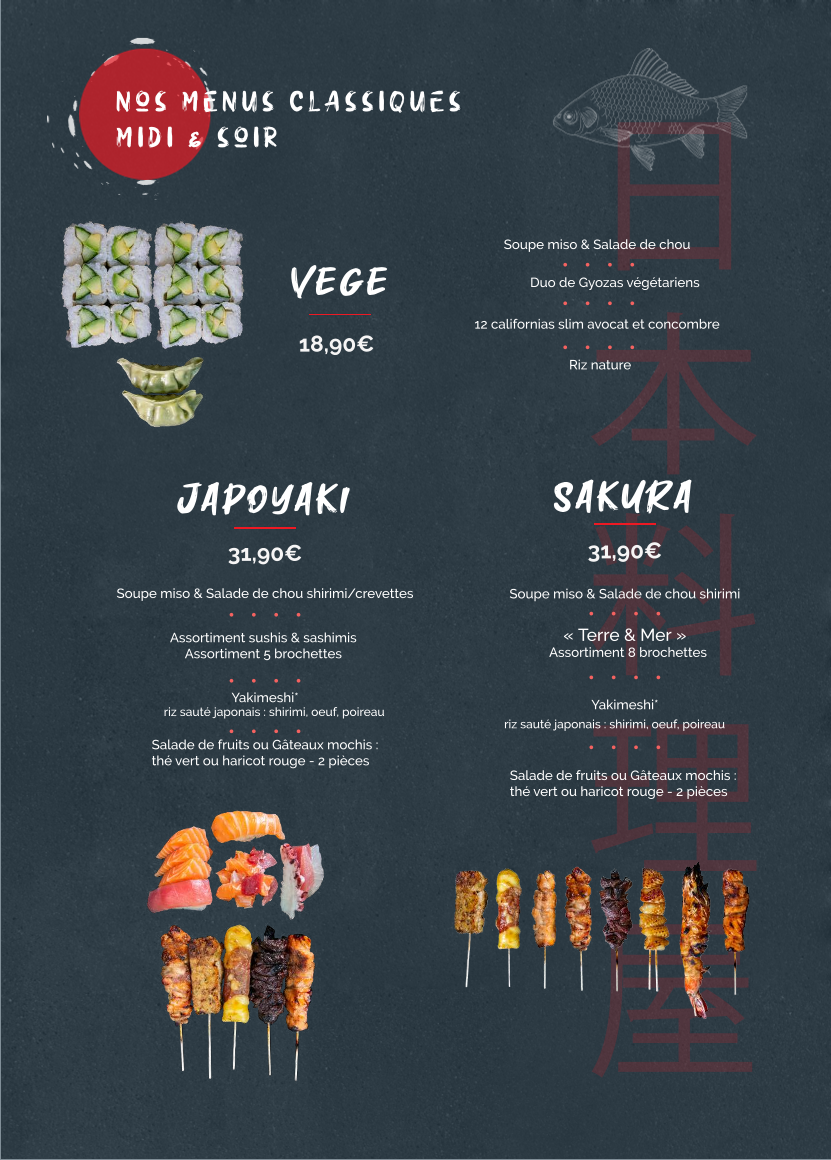 NOS MENUS CLASSIQUES
MIDI & SOIR
VEGE
18,90€
Soupe miso & Salade de chou
Duo de Gyozas végétariens
12 californias slim avocat et concombre
Riz nature
JAPOYAKI
31,90€
Soupe miso & Salade de chou shirimi/crevettes
Assortiment sushis & sashimis
Assortiment 5 brochettes
Yakimeshi*
riz sauté japonais : shirimi, oeuf, poireau
Salade de fruits ou Gâteaux mochis :
thé vert ou haricot rouge - 2 pièces
SAKURA
31,90€
Soupe miso & Salade de chou shirimi
« Terre & Mer »
Assortiment 8 brochettes
Yakimeshi*
riz sauté japonais : shirimi, oeuf, poireau
Salade de fruits ou Gâteaux mochis :
thé vert ou haricot rouge - 2 pièces
日本料理屋